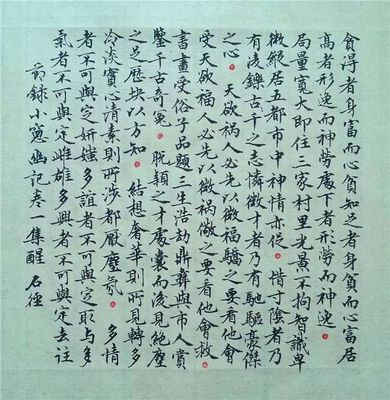 貪得者身富而心貧知足者身貧而心富居
高者形逸而神勞處下者形勞而神逸
局量寬大即住三家村里光景不拘智識卑
微縱居五都市中神情亦促 惜寸陰者乃
有凌鑠古千之志憐微才者乃有馳驅豪傑
之心 天欲禍人必先以微福驕之要看他會
受天欲福人必先以微禍儆之要看他會救
書畫受俗子品題三生浩劫鼎彝與市人賞
鑒千古奇冤 脫穎之才處囊而後見絕塵
之足歷塊以方知 結想奢華則所見轉多
冷淡實心清素則所涉都厭塵氛 多情
者不可與定妍媸多誼者不可與定取與多
氣者不可與定雌雄多興者不可與定去住
節錄小窗幽記卷一集醒 石